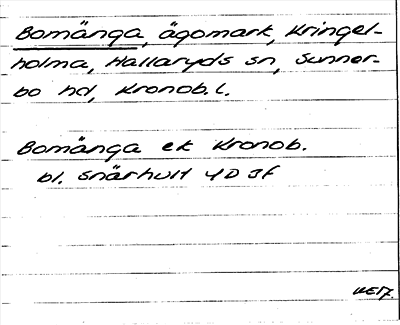 Bomånga, ägomark, Kringel-
holma, Hallaryds sn, Sunner-
bo hd, Kronob. l.
Bomånga ek Kronob.
bl. Snärhult 4D 3f